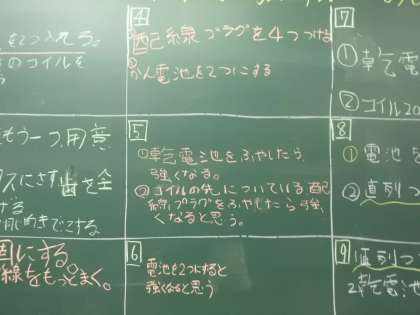 を2つ入れる。
のコイルを
4
①配線プラグを4つつける
②かん電池を2つにする
7
①乾電
②コイル20
もう一つ用意
スにさす歯を全
ける
きでこする
5
①乾電池をふやしたら
強くなる。
②コイルの先についている配
線プラグをふやしたら強
くなると思う。
8
①電池を
②直列つ
固にする。
線をもっとまく。
6
電池を2つにすると
強くなると思う
9
1直列つ
2乾電池